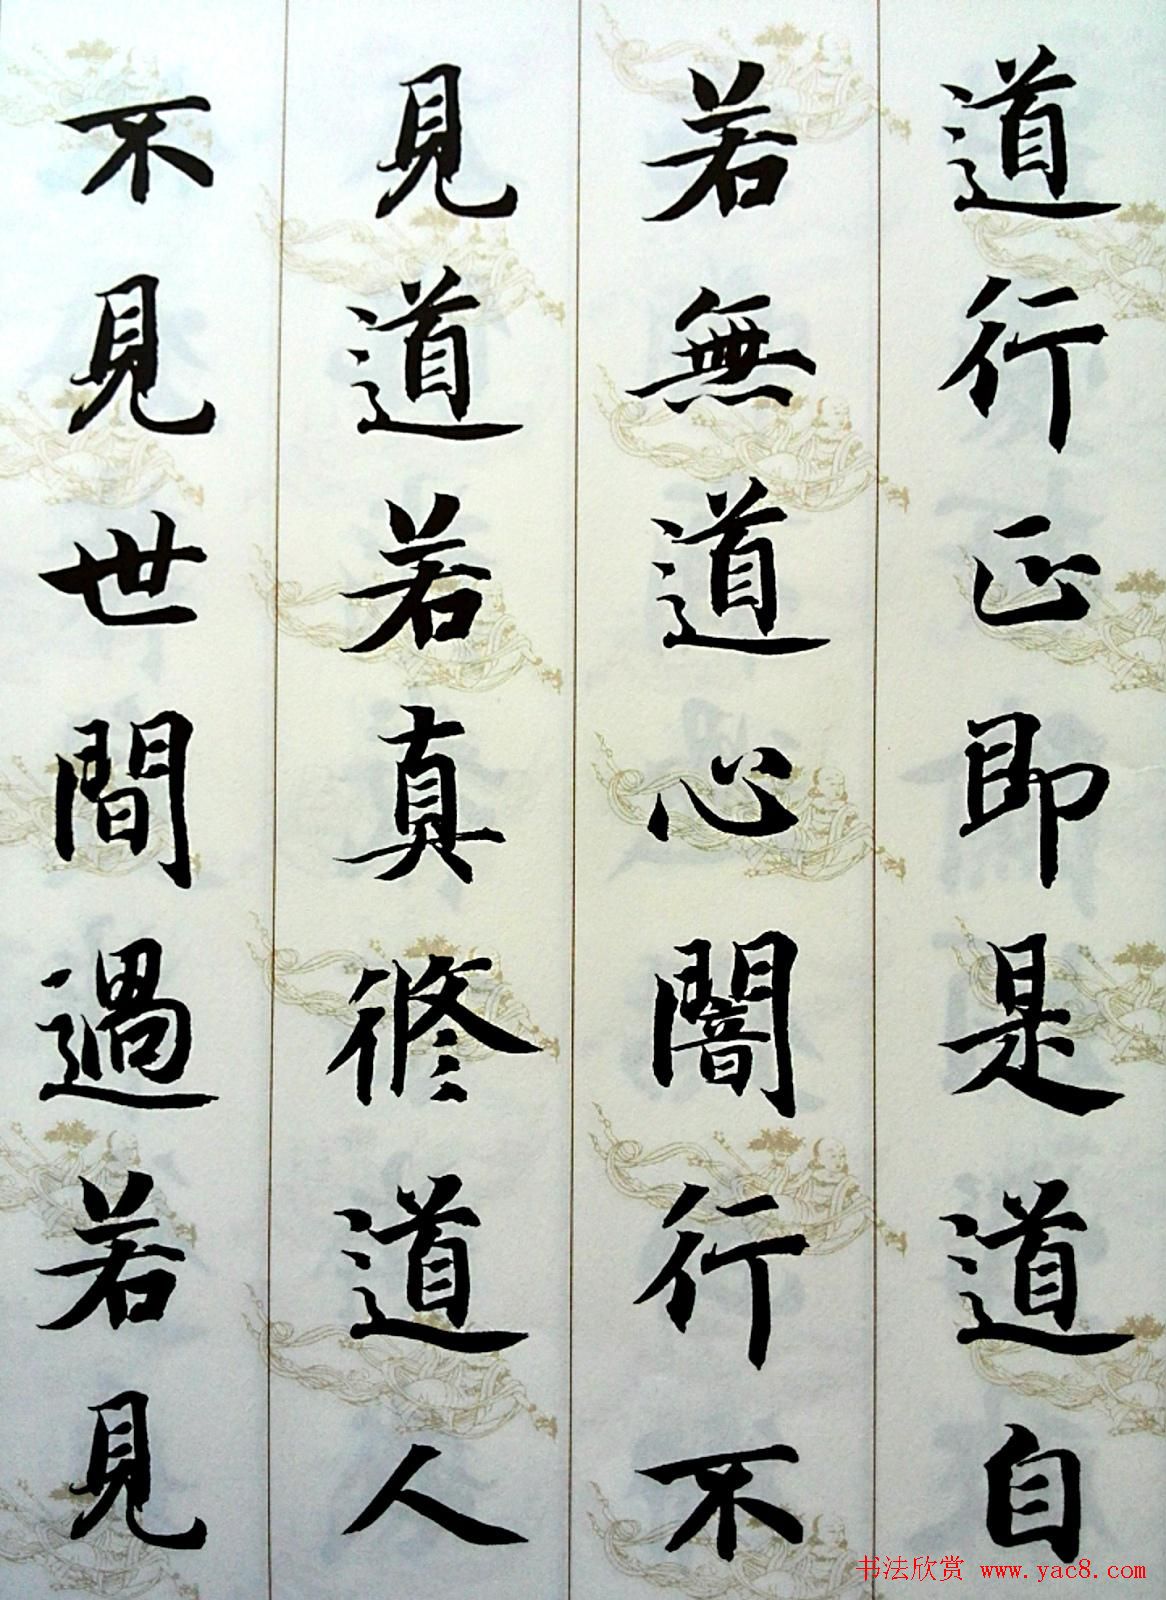 道行正即是道自
若無道心闇行不
見道若真修道人
不見世間過若見
书法欣赏 www.yac8.com